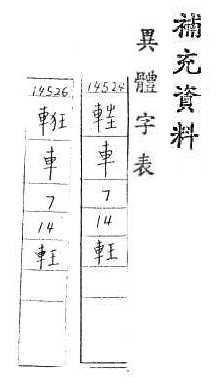 補充資料
異體字表
14524
軠
車
7
14
軖
14526
車
7
14
軖